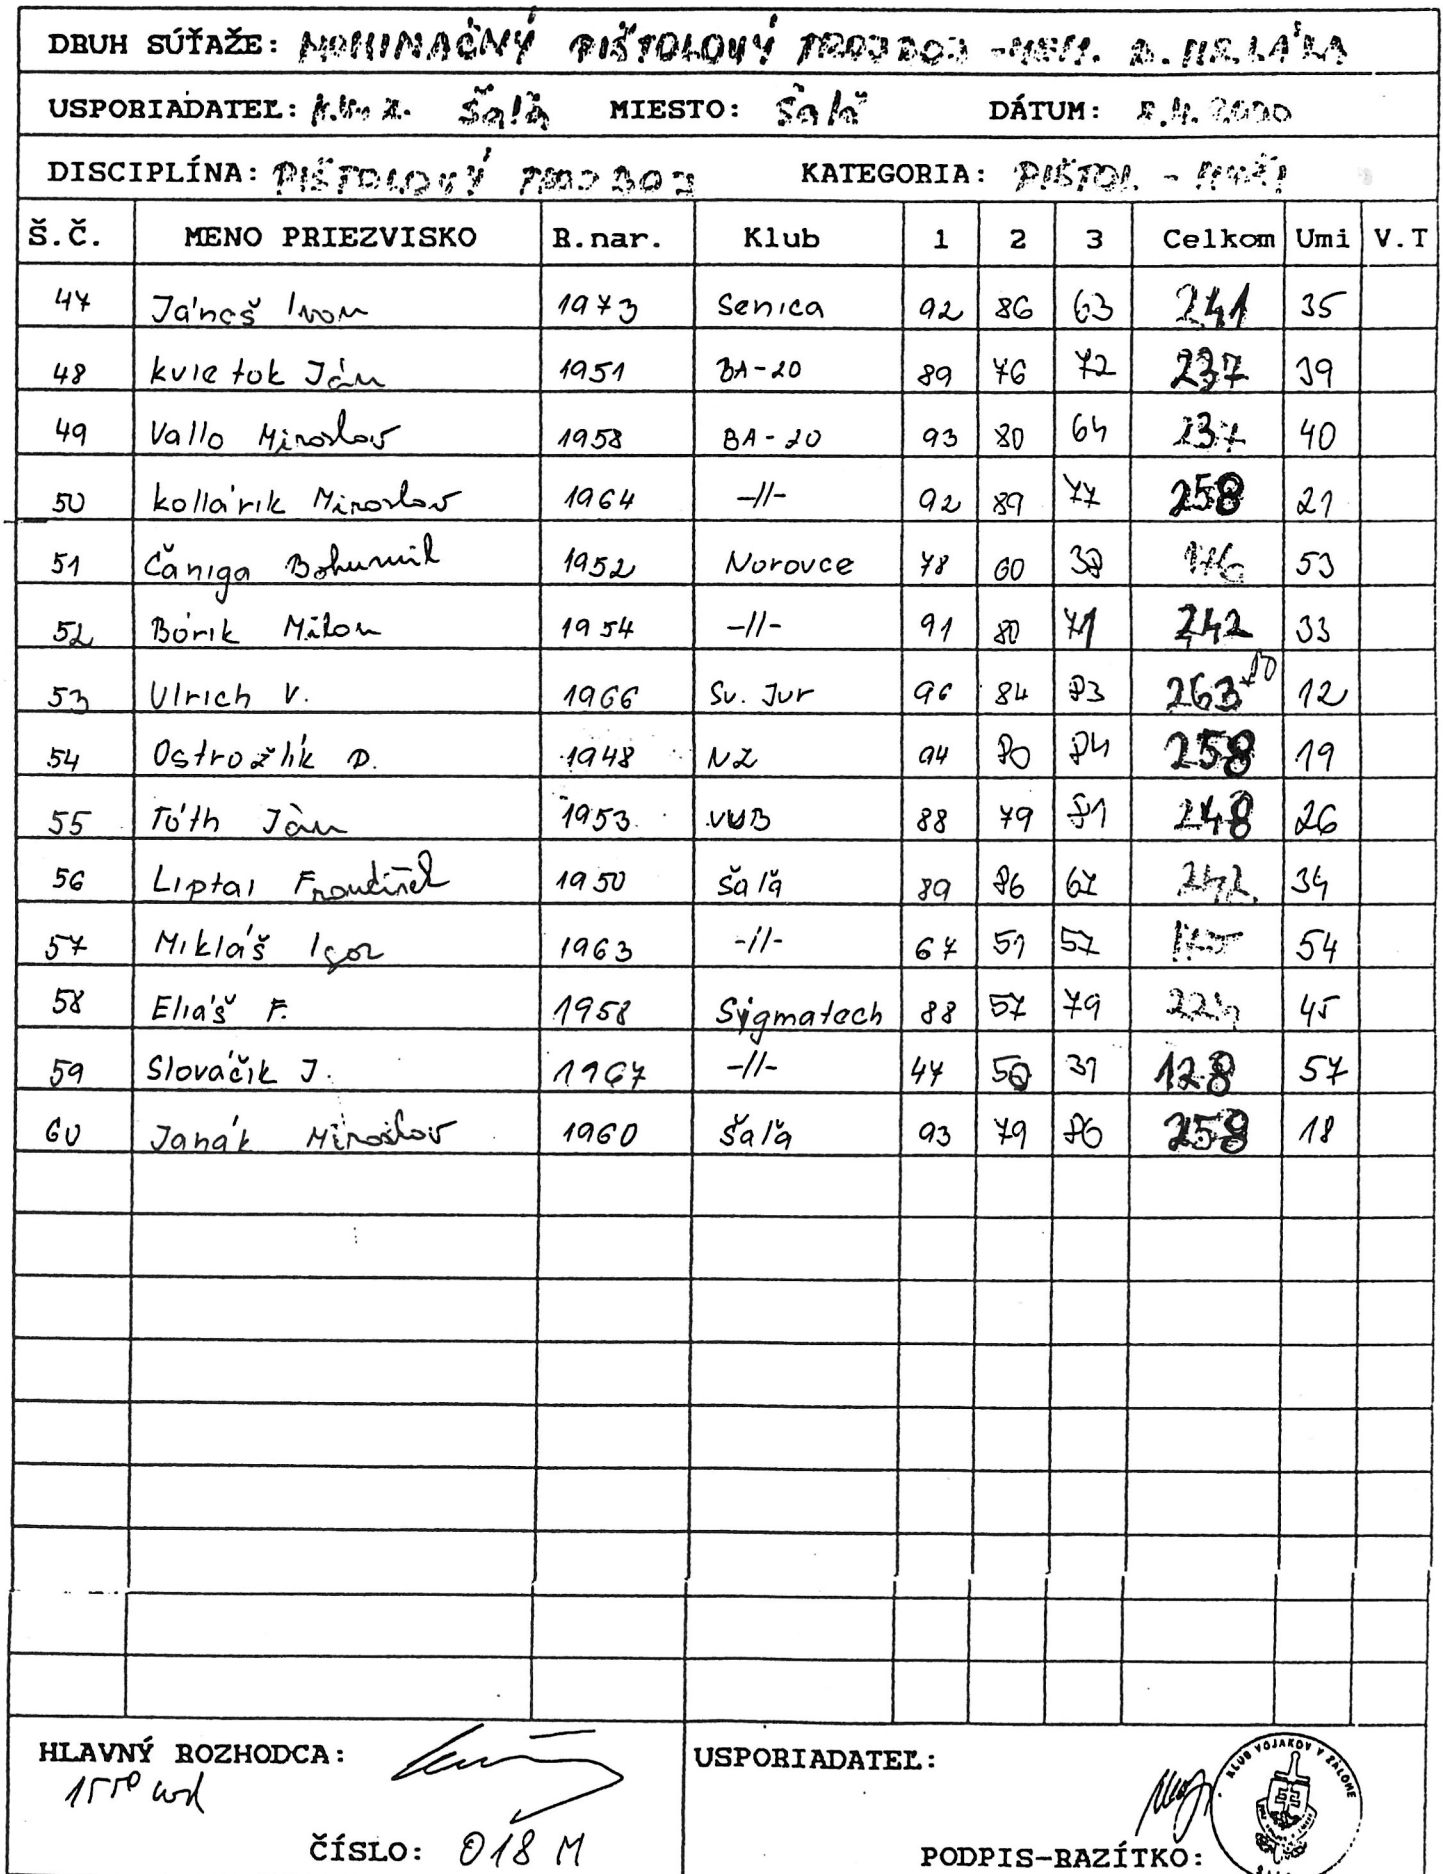 DRUH SÚŤAŽE: NOMINAČNÝ PIŠTOLOVÝ TROJBOJ - MEM.
USPORIADATEĽ: K.V. Z. Šaľa MIESTO: Šaľa DÁTUM:
DISCIPLÍNA: PIŠTOLOVÝ TROJBOJ KATEGORIA: PIŠTOL - MUŽI
Š.Č. MENO PRIEZVISKO R.nar. Klub 1 2 3 Celkom Umi V.T
47 Jánoš Ivan 1973 Senica 92 86 63 241 35
48 kvietok Ján 1951 BA-20 89 76 72 237 39
49 Vallo Miroslav 1958 BA-20 93 80 64 237 40
50 kollárik Miroslav 1964 -//- 92 89 77 258 21
51 Čániga Bohumil 1952 Norovce 78 60 38 176 53
52 Bórik Milan 1954 -//- 91 80 71 242 33
53 Ulrich V. 1966 Sv. Jur 96 84 83 263 10 12
54 Ostrožlík D. 1948 NZ 94 80 84 258 19
55 Tóth Ján 1953 VUB 88 79 81 248 26
56 Liptai František 1950 Šaľa 89 86 67 242 34
57 Mikláš Igor 1963 -//- 67 51 57 175 54
58 Eliáš F. 1958 Sýgmatech 88 57 79 224 45
59 Slováčik J. 1967 -//- 47 50 31 128 57
60 Janák Miroslav 1960 Šaľa 93 79 86 258 18
HLAVNÝ ROZHODCA:
USPORIADATEĽ:
KLUB VOJAKOV V ZÁLOHE
ČÍSLO: 018 M
PODPIS-RAZÍTKO: